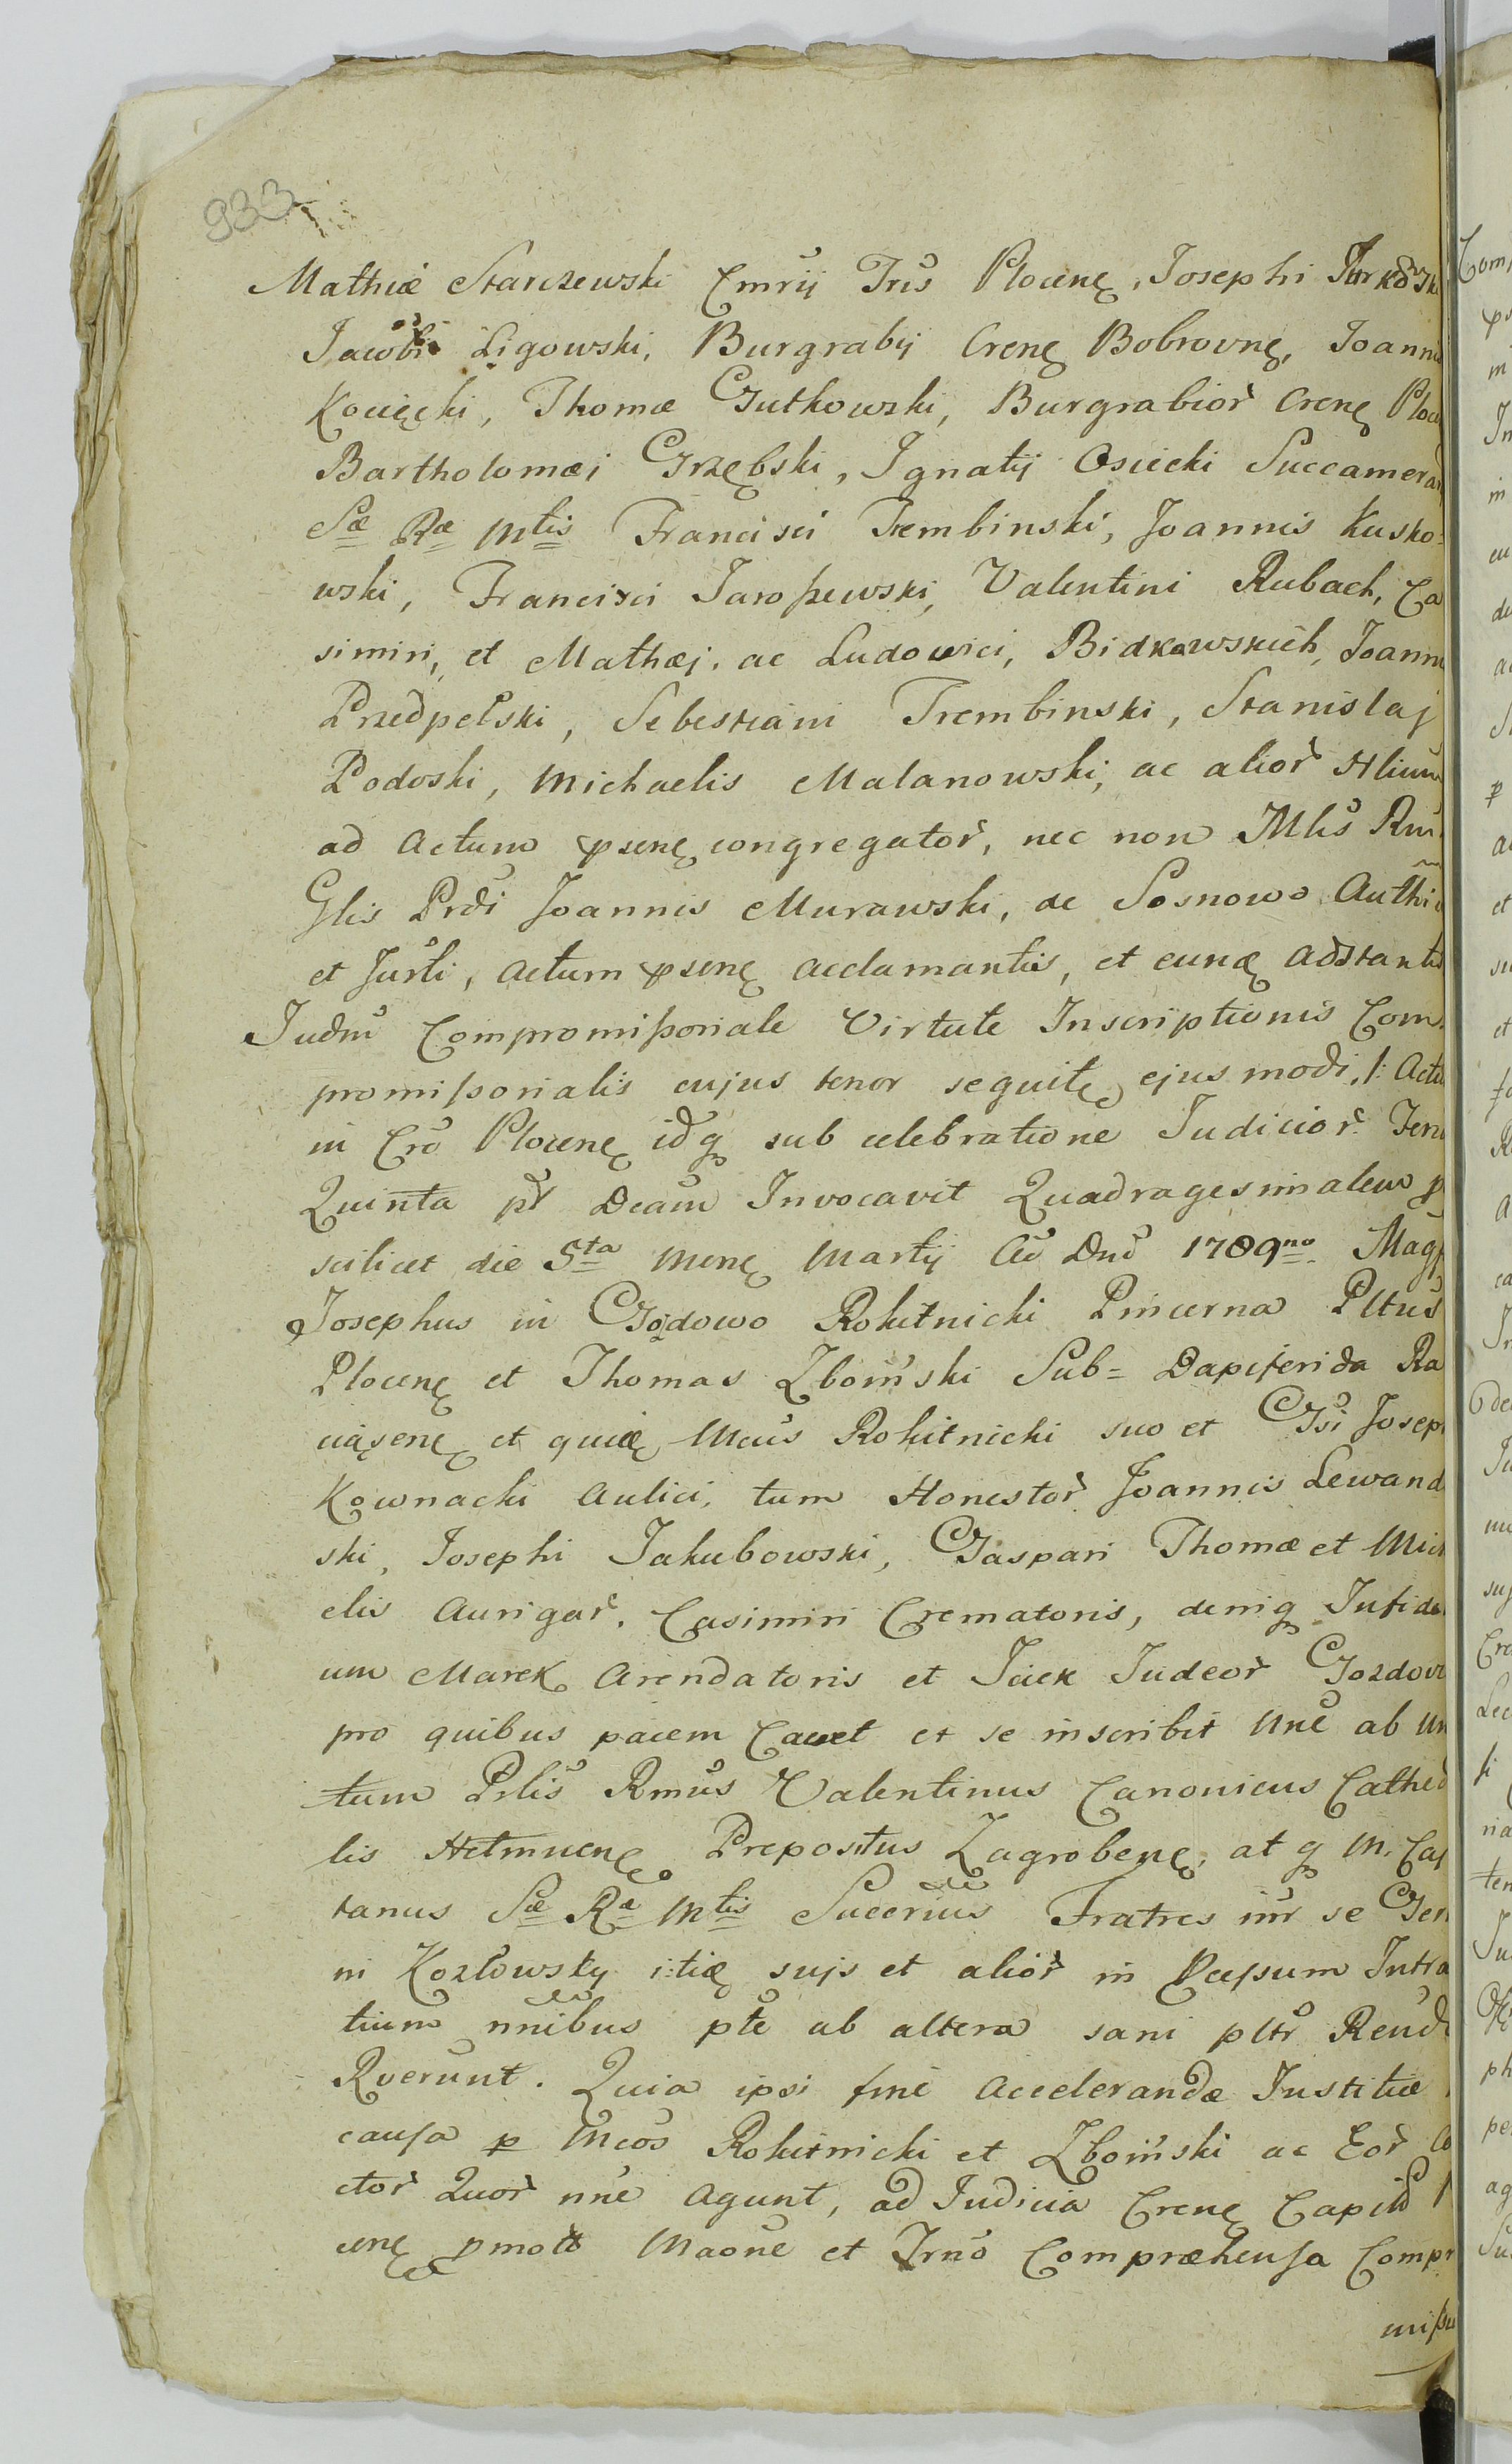 933
Mathiæ Starczewski Cmrij Tris Plocenę, Josephi Turkowski
Jacobi Ligowski, Burgrabij Crenę Bobrovnę, Joannis
Kocięcki, Thomæ Gutkowski, Burgrabior Crenę Ploce
Bartholomæi Grzębski, Ignatij Osiecki Succamerar
Sæ Ræ Mtis Francisci Trembinski, Joannis Kusko=
wski, Francisci Jaroszewski, Valentini Rubach, Ca
simiri, et Mathæj, ac Ludowici, Bidkowskich, Joann
Przedpełski, Sebestiani Trembinski, Stanislaj
Podoski, Michaelis Malanowski, ac alior Nlium
ad Actum psenę congregator, nec non Mlis Rm
Glis Prdi Joannis Murawski, de Sosnowo Authi
et Jurti, Actum psenę acclamantis, et cunæ adstantis
Judm Compromissoriale Virtute Inscriptionis Com.
promissorialis cujus tenor seguitę ejus modi, /: Actu
in Cro Plocenę idq sub celebratione Judicior Ter
Quinta pt Dcam Invocavit Quadragesimalem p
scilicet die 5ta Menę Martij Ao Dni 1789no Magf
Josephus in Gozdowo Rokitnicki Pincerna Pltus
Plocenę et Thomas Zboiński Sub= Dapiferida Ra
ciążenę et quidę Mcus Rokitnicki suo et Gsi Josep
Kownacki Aulici, tum Honestor Joannis Lewand
ski, Josephi Jakubowski, Gaspari Thomæ et Mich
elis Aurigar, Casimiri Crematoris, deniq Infide
um Marek Arendatoris et Jcek Judeor Gozdov
pro quibus pacem Cavet et se inscribit Une ab un
tum Prlis Rmus Valentinus Canonicus Cathed
lis Helmnenę Prepositus Zagrobenę, at q M. Caj
tanus Sæ Ræ Mtis Succrius Fratres inr se Ger
ni Kozłowsky itię sujs et alior in Pcessum Intra
tium nnibus pte ab altera sani pltr Reud
Rverunt. Quia ipsi fine Accelerandæ Justitiæ
causa p Mcos Rokitnicki et Zboiński ac Eor Co
ctor Quor nne Agunt, ad Judicia Crenę Capild
cenę pmotæ Maone et Trno Compræhensa Compr
missu